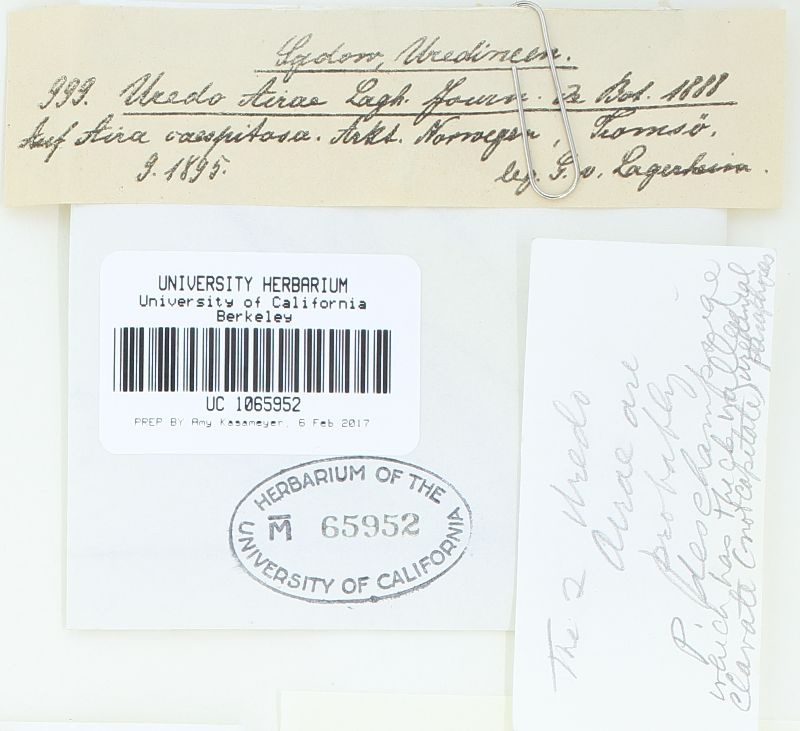 Sydow, Uredineen.
999. Uredo Airae Lagh. Journ. de Bot. 1888
Auf Aira caespitosa. Arkt. Norwegen, Tromsö.
9. 1895. leg. G. v. Lagerheim.
UNIVERSITY HERBARIUM
University of California
Berkeley
UC 1065952
PREP BY Amy Kasameyer, 6 Feb 2017
HERBARIUM OF THE
M̅ 65952
UNIVERSITY OF CALIFORNIA
The 2 Uredo
Airae are
probably
P. deschampsiae
which has thick walled
clavate (not capitate) uredinial
paraphyses